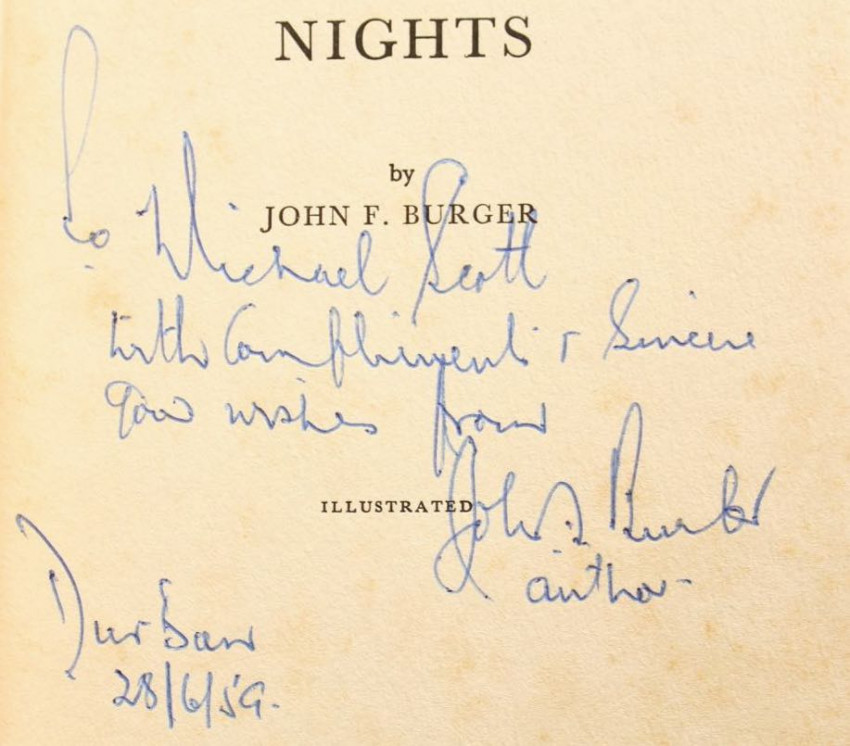 NIGHTS
by
JOHN F. BURGER
To Michael Scott
with Compliments & Sincere
good wishes from
ILLUSTRATED
John F Burger
author
Durban
28/6/59.